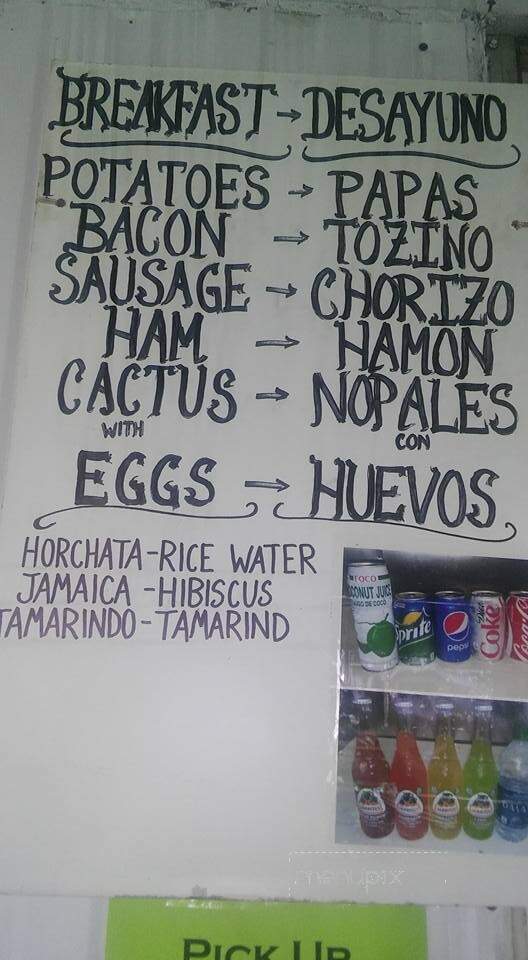 BREAKFAST → DESAYUNO
POTATOES → PAPAS
BACON → TOZINO
SAUSAGE → CHORIZO
HAM → HAMON
CACTUS → NOPALES
WITH CON
EGGS → HUEVOS
HORCHATA-RICE WATER
JAMAICA -HIBISCUS
TAMARINDO-TAMARIND
FOCO
COCONUT JUICE
JUGO DE COCO
Sprite
pepsi
Coke
PICK UP
menupix